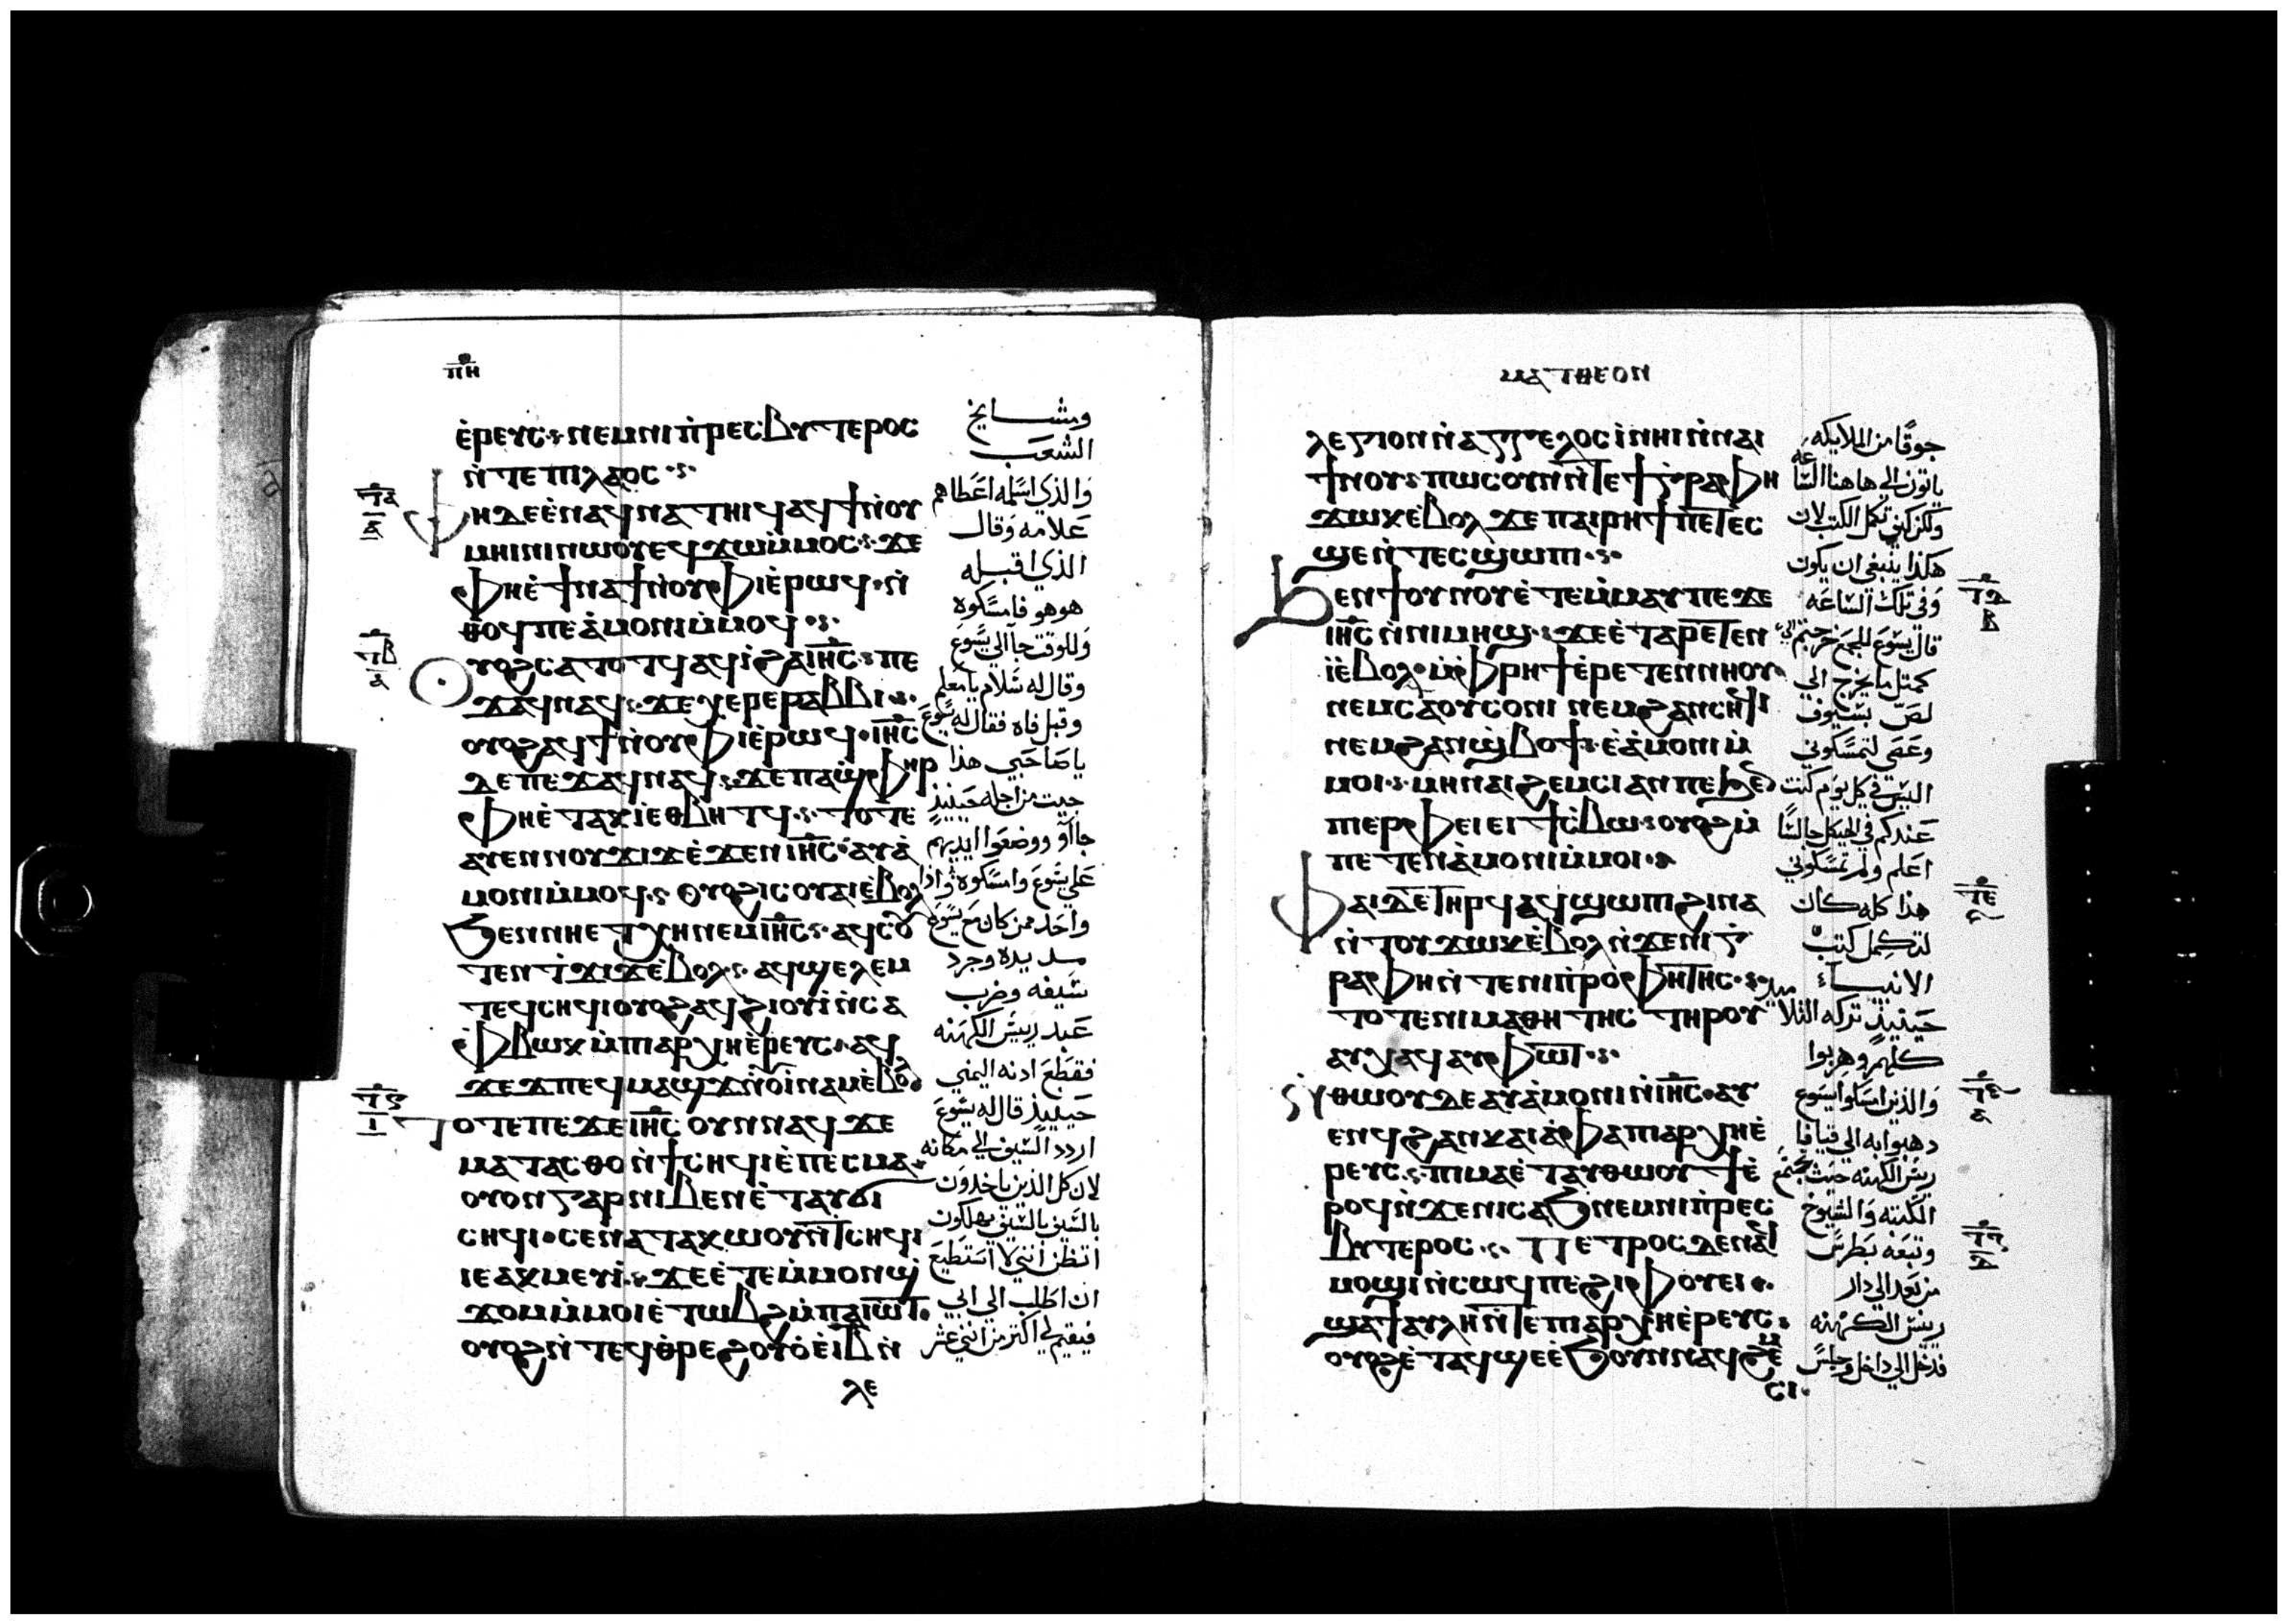 ⲡⲏ
ⲉ̀ⲣⲉⲩⲥ ⲛⲉⲙ ⲛⲓⲡ̀ⲣⲉⲥⲃⲩⲧⲉⲣⲟⲥ
ⲛ̀ⲧⲉ ⲡⲓⲗⲁⲟⲥ
ⲫⲏ ⲇⲉ ⲉ̀ⲛⲁϥⲛⲁⲧⲏⲓϥ ⲁϥϯ ⲛ̀ⲟⲩ
ⲙⲏⲓⲛⲓ ⲛⲱⲟⲩ ⲉϥϫⲱ ⲙ̀ⲙⲟⲥ ϫⲉ
ⲫⲏ ⲉ̀ϯⲛⲁϯ ⲛ̀ⲟⲩⲫⲓ ⲉ̀ⲣⲱϥ ⲛ̀
ⲑⲟϥ ⲡⲉ ⲁ̀ⲙⲟⲛⲓ ⲙ̀ⲙⲟϥ
ⲟⲩⲟϩ ⲥⲁⲧⲟⲧϥ ⲁϥⲓ̀ ϩⲁ ⲓⲏⲥ ⲡⲉ
ϫⲁϥ ⲛⲁϥ ϫⲉ ⲭⲉⲣⲉ ⲣⲁⲃⲃⲓ
ⲟⲩⲟϩ ⲁϥϯ ⲛ̀ⲟⲩⲫⲓ ⲉ̀ⲣⲱϥ ⲓⲏⲥ
ⲇⲉ ⲡⲉϫⲁϥ ⲛⲁϥ ϫⲉ ⲡⲁϣ̀ⲫⲏⲣ
ⲫⲏ ⲉ̀ⲧⲁⲕⲓ̀ ⲉⲑⲃⲏⲧϥ ⲧⲟⲧⲉ
ⲁⲩⲉⲛ ⲛⲟⲩϫⲓϫ ⲉ̀ϫⲉⲛ ⲓⲏⲥ ⲁⲩⲁ̀
ⲙⲟⲛⲓ ⲙ̀ⲙⲟϥ ⲟⲩⲟϩ ⲓⲥ ⲟⲩⲁⲓ ⲉ̀ⲃⲟⲗ
ϧⲉⲛ ⲛⲏ ⲉⲧⲭⲏ ⲛⲉⲙ ⲓⲏⲥ ⲁϥⲥⲟⲩ
ⲧⲉⲛ ⲧ̀ϫⲓϫ ⲉ̀ⲃⲟⲗ ⲁϥϣⲉⲗⲉⲙ
ⲧⲉϥⲥⲏϥⲓ ⲟⲩⲟϩ ⲁϥϩⲓⲟⲩⲓ̀ ⲛ̀ⲥⲁ
ⲫ̀ⲃⲱⲕ ⲙ̀ⲡⲓⲁⲣⲭⲏⲉ̀ⲣⲉⲩⲥ ⲁϥ
ϫⲉϫ ⲡⲉϥⲙⲁϣϫ ⲛ̀ⲟⲩⲓ̀ⲛⲁⲙ ⲉ̀ⲃⲟⲗ
ⲧⲟⲧⲉ ⲡⲉϫⲉ ⲓⲏⲥ ⲟⲩⲛ ⲛⲁϥ ϫⲉ
ⲙⲁⲧⲁⲥⲑⲟ ⲛ̀ϯⲥⲏϥⲓ ⲉ̀ⲡⲉⲥⲙⲁ
ⲟⲩⲟⲛ ⲅⲁⲣ ⲛⲓⲃⲉⲛ ⲉ̀ⲧⲁⲩϭⲓ
ⲥⲏϥⲓ ⲥⲉⲛⲁⲧⲁⲕⲱⲟⲩ ⲛ̀ⲧⲥⲏϥⲓ
ⲓⲉ ⲁⲕⲙⲉⲩⲓ̀ ϫⲉ ⲉ̀ⲧⲉ ⲙ̀ⲙⲟⲛ ϣ̀
ϫⲟⲙ ⲙ̀ⲙⲟⲓ ⲉ̀ⲧⲱⲃϩ ⲙ̀ⲡⲁⲓⲱⲧ
ⲟⲩⲟϩ ⲛ̀ⲧⲉϥⲑ̀ⲣⲉ ϩⲟⲩⲟ̀ ⲉ̀ⲓⲃ ⲛ̀
ⲗⲉ
ومشايخ
الشعب
والذي اسلمه اعطاهم
علامه وقال
الذي اقبله
هو هو فامسكوه
وللوقت جا الى يسوع
وقال له سلام يا معلم
وقبل فاه فقال له يسوع
يا صاحبي هذا
جيت من اجله حينيذ
جاآو ووضعوا ايديهم
على يسوع وامسكوه واذا
واحد ممن كان مع يسوع
مد يده وجرد
سيفه وضرب
عبد ريس الكهنه
فقطع ادنه اليمني
حينيذ قال له يسوع
اردد السيف الى مكانه
لان كل الذين ياخدون
بالسيف بالسيف يهلكون
اتظن انني لا استطيع
ان اطلب الى ابي
فيقيم لي اكتر من اتني عشر
ⲙⲁⲧⲑⲉⲟⲛ
ⲗⲉⲅⲓⲟⲛ ⲛ̀ⲁⲅⲅⲉⲗⲟⲥ ⲓ̀ⲛⲏⲓ ⲛ̀ⲛⲁⲓ
ϯⲛⲟⲩ ⲡⲱⲥ ⲟⲩⲛ ⲛ̀ⲧⲉ ϯⲅ̀ⲣⲁⲫⲏ
ϫⲱⲕ ⲉ̀ⲃⲟⲗ ϫⲉ ⲡⲁⲓⲣⲏϯ ⲡⲉⲧⲉⲥ
ϣⲉ ⲛ̀ⲧⲉⲥϣⲱⲡⲓ
ϧⲉⲛ ϯⲟⲩⲛⲟⲩ ⲉ̀ⲧⲉⲙ̀ⲙⲁⲩ ⲡⲉϫⲉ
ⲓⲏⲥ ⲛ̀ⲛⲓⲙⲏϣ ϫⲉ ⲉ̀ⲧⲁⲣⲉⲧⲉⲛ
ⲓ̀ ⲉ̀ⲃⲟⲗ ⲙ̀ⲫ̀ⲣⲏϯ ⲉ̀ⲣⲉⲧⲉⲛⲛⲏⲟⲩ
ⲛⲉⲙ ⲥⲁ ⲟⲩⲥⲟⲛⲓ ⲛⲉⲙ ϩⲁⲛⲥⲏϥⲓ
ⲛⲉⲙ ϩⲁⲛϣ̀ⲃⲟϯ ⲉ̀ⲁ̀ⲙⲟⲛⲓ ⲙ̀
ⲙⲟⲓ ⲙⲏ ⲛⲁⲓϩⲉⲙⲥⲓ ⲁⲛ ⲡⲉ ϧⲉⲛ
ⲡⲓⲉⲣⲫⲉⲓ ⲉⲓϯⲥ̀ⲃⲱ ⲟⲩⲟϩ ⲙ̀
ⲡⲉⲧⲉⲛⲁ̀ⲙⲟⲛⲓ ⲙ̀ⲙⲟⲓ
ⲫⲁⲓ ⲇⲉ ⲧⲏⲣϥ ⲁϥϣⲱⲡⲓ ϩⲓⲛⲁ
ⲛ̀ⲧⲟⲩϫⲱⲕ ⲉ̀ⲃⲟⲗ ⲛ̀ϫⲉ ⲛⲓⲅ̀
ⲣⲁⲫⲏ ⲛ̀ⲧⲉ ⲛⲓⲡ̀ⲣⲟⲫⲏⲧⲏⲥ
ⲧⲟⲧⲉ ⲛⲓⲙⲁⲑⲏⲧⲏⲥ ⲧⲏⲣⲟⲩ
ⲁⲩⲭⲁϥ ⲁⲩⲫⲱⲧ
ⲛ̀ⲑⲱⲟⲩ ⲇⲉ ⲁⲩⲁ̀ⲙⲟⲛⲓ ⲛ̀ⲓⲏⲥ ⲁⲩ
ⲉⲛϥ ϩⲁ ⲛⲕⲁⲓⲁ̀ⲫⲁ ⲡⲓⲁⲣⲭⲏⲉ̀
ⲣⲉⲩⲥ ⲡⲓⲙⲁ ⲉ̀ⲧⲁⲩⲑⲱⲟⲩϯ ⲉ̀
ⲣⲟϥ ⲛ̀ϫⲉ ⲛⲓⲥⲁϧ ⲛⲉⲙ ⲛⲓⲡ̀ⲣⲉⲥ
ⲃⲩⲧⲉⲣⲟⲥ ⲡⲉⲧⲣⲟⲥ ⲇⲉ ⲛⲁϥ
ⲙⲟϣⲓ ⲛ̀ⲥⲱϥ ⲡⲉ ϩⲓⲫⲟⲩⲉⲓ
ϣⲁ ϯⲁⲩⲗⲏ ⲛ̀ⲧⲉ ⲡⲓⲁⲣⲭⲏⲉ̀ⲣⲉⲩⲥ
ⲟⲩⲟϩ ⲉ̀ⲧⲁϥϣⲉ ⲉ̀ϧⲟⲩⲛ ⲛⲁϥϩⲉⲙ
ⲥⲓ
جوقًا من الملايكه
ياتون الى هاهنا الساعه
ولكن كيف تكمل الكتب لان
هكذا ينبغي ان يكون
وفي تلك الساعه
قال يسوع للجمع خرجتم الي
كمتل ما يخرج الى
لص بسيوف
وعصى لتمسكوني
اليس في كل يوم كنت
عندكم في الهيكل جالسًا
اعلم ولم تمسكوني
هذا كله كان
لتكمل كتب
الانبياء
حينيذ تركه التلاميد
كلهم وهربوا
والذين امسكوا يسوع
دهبوا به الى قيافا
ريس الكهنه حيت تجتمع
الكتبه والشيوخ
وتبعه بطرس
من بعد الى دار
ريس الكهنه
فدخل الى داخل وجلس